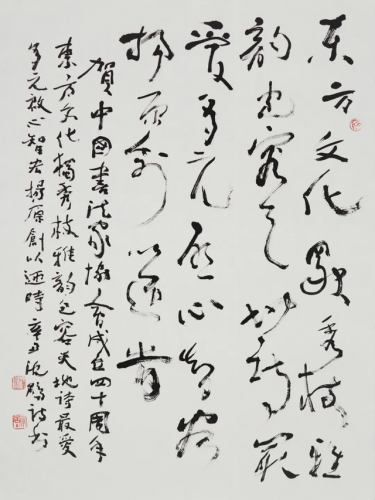 东方文化独秀枝雅
韵包容天地诗最
爱多元启心智发
扬原创以适时
贺中国书法家协会成立四十周年
东方文化獨秀枝雅韵包容天地诗最爱
多元启心智发揚原創以適時 辛丑沈鹏诗书